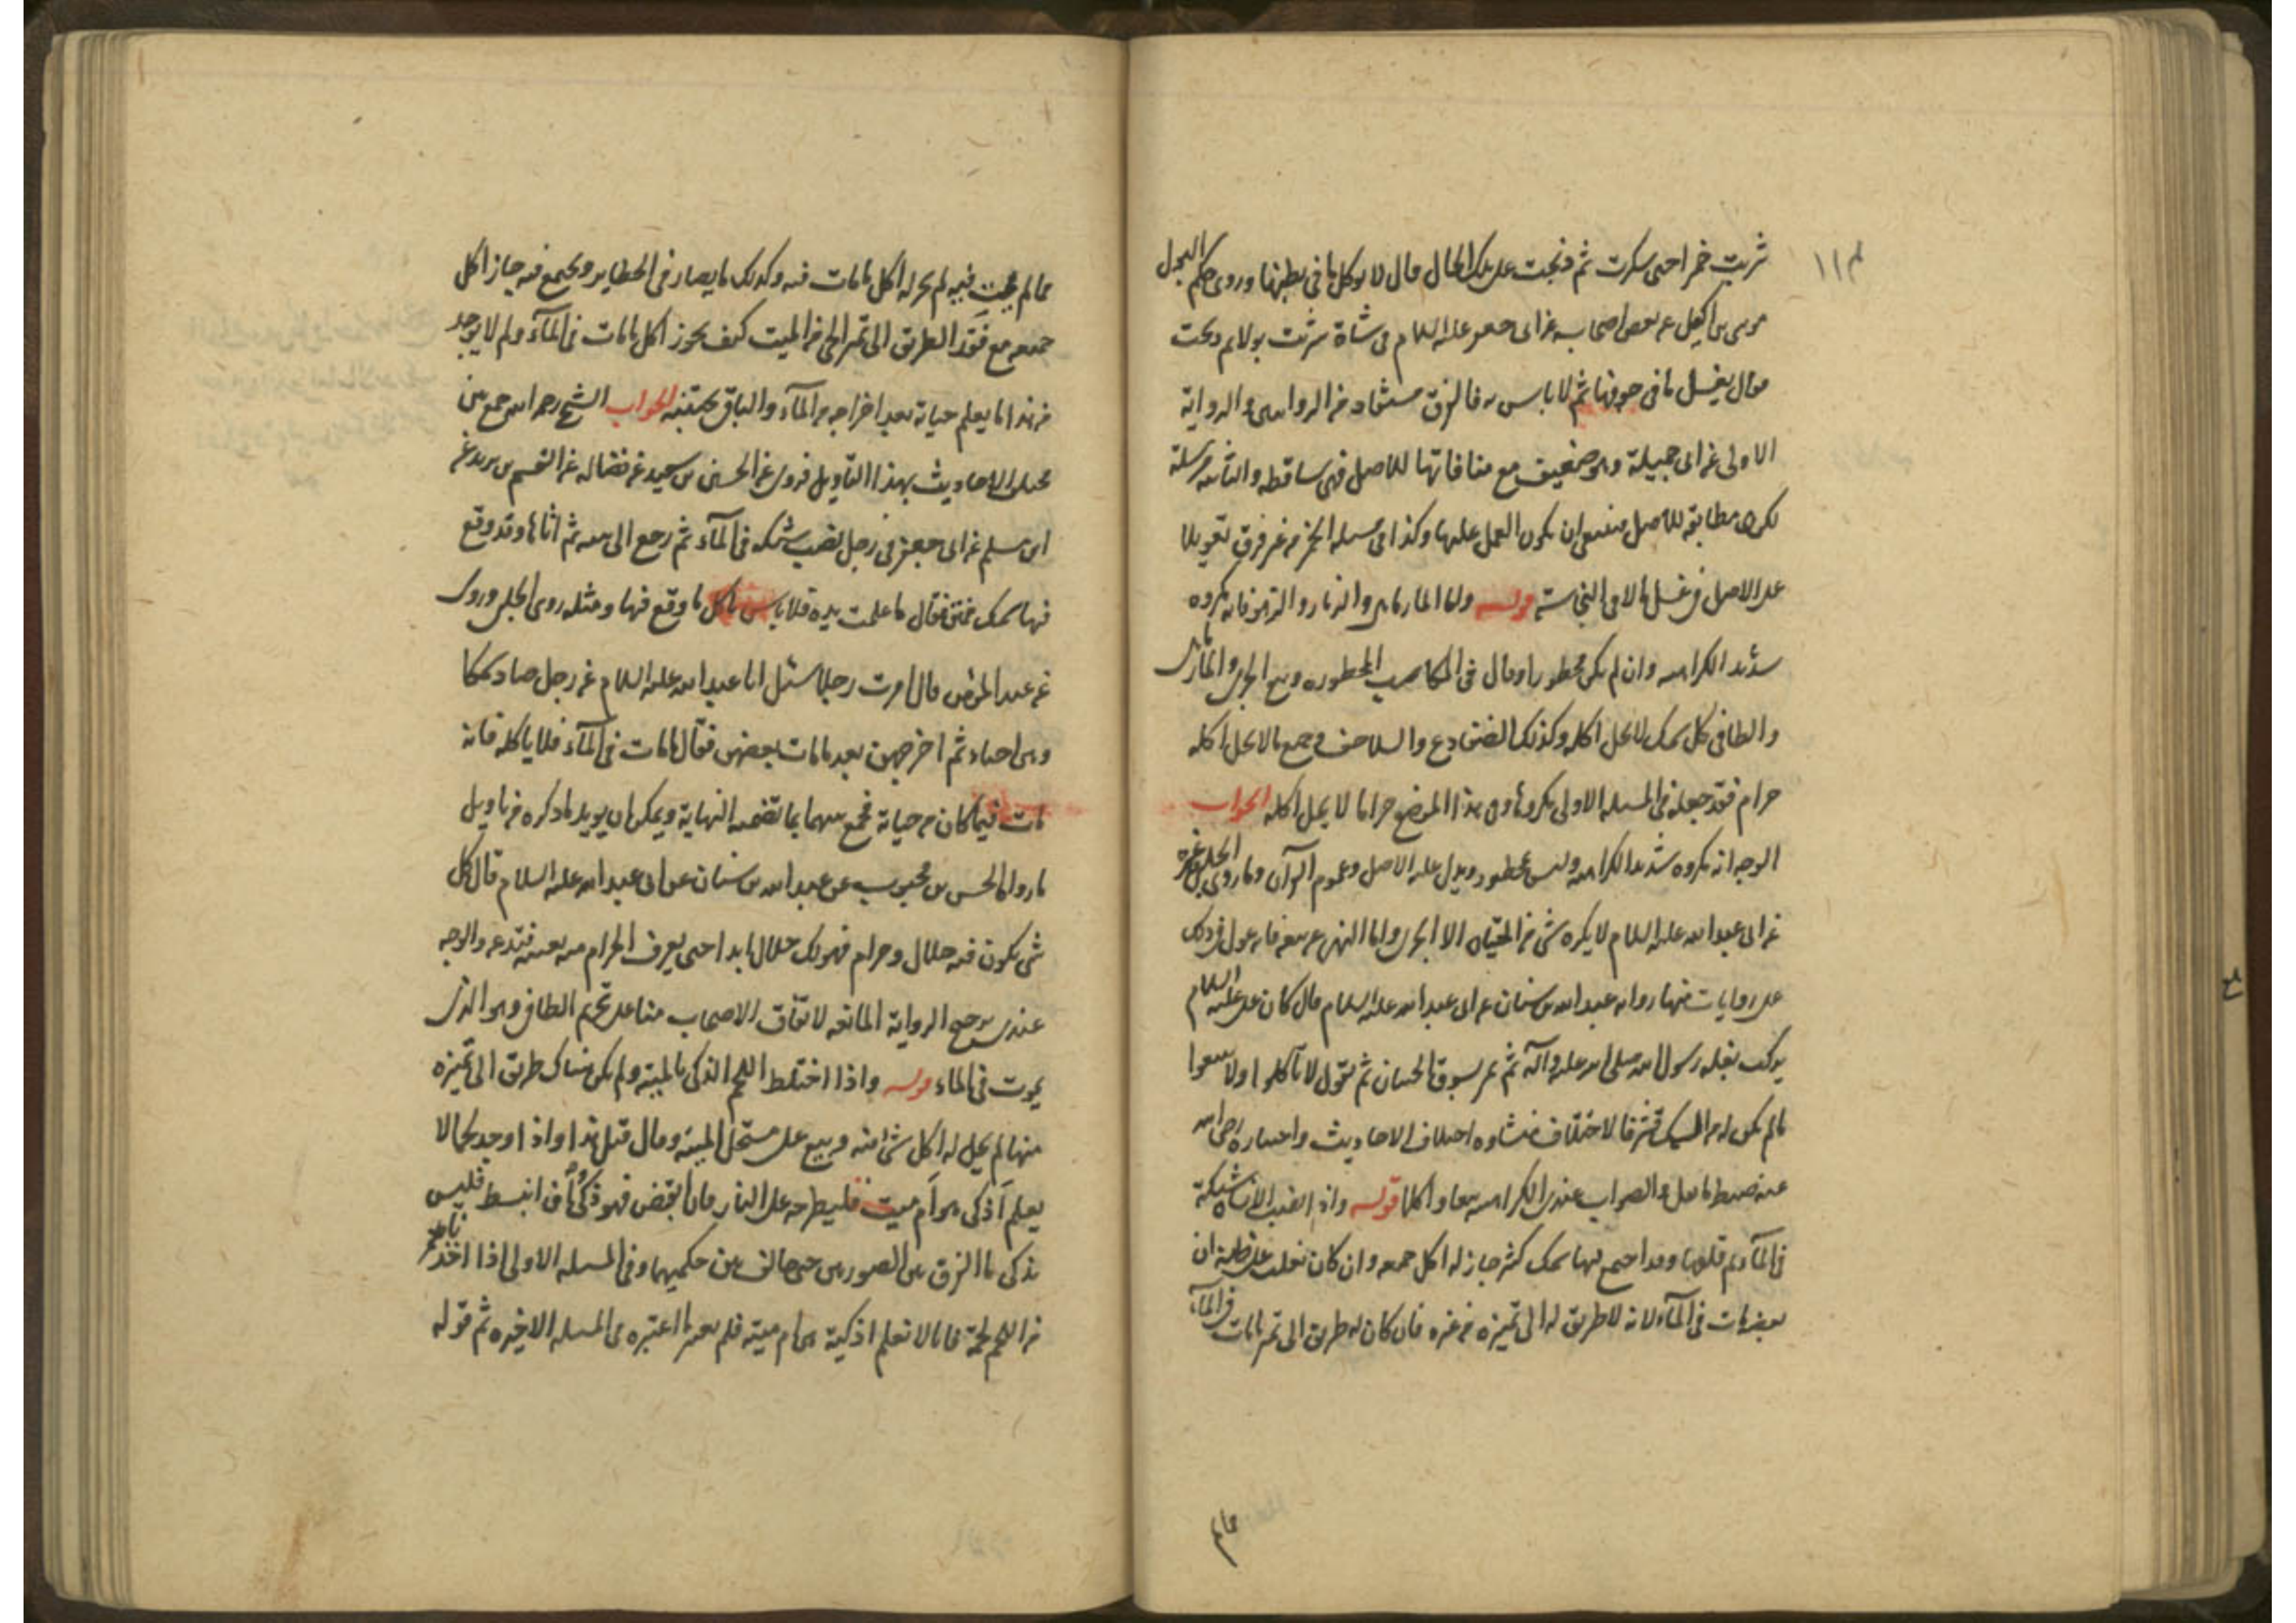 شربت خمرا حتى سكرت ثم ذبحت على تلك الحال قال لا يوكل ما فى بطنها وروى حكم البول
موسى بن اكيل عن بعض اصحابه عن ابى جعفر عليه السلام فى شاة شربت بولا ثم ذبحت
فقال يغسل ما فى جوفها ثم لا باس به فالفرق مستفاد من الروايتين والرواية
الاولى عن ابى جميلة وهو ضعيف مع منافاتها للاصل فهى ساقطه والثانيه مرسلة
لكن مطابقه للاصل فينبغى ان يكون العمل عليها وكذا فى مسله الخمر من غير فرق تعويلا
على الاصل فى غسل ما لاقى النجاسة قوله واما المارماهى والزمار والزهو فانه مكروه
شديد الكراهيه وان لم يكن محظورا وقال فى المكاسب المحظوره وبيع الجرى والمارماهى
والطافى وكل سمك لا يحل اكله وكذلك الضفادع والسلاحف وجميع ما لا يحل اكله
حرام فقد جعله فى المسله الاولى مكروها وفى هذا الموضع حراما لا يحل اكله الجواب
الوجه انه مكروه شديد الكراهيه وليس بمحظور ويدل عليه الاصل وعموم القرآن وما روى الحلبى وغيره
عن ابى عبد الله عليه السلام لا يكره شى من الحيتان الا الجرى واما النهى عن بيعه فانه عول فى ذلك
على روايات منها رواية عبد الله بن سنان عن ابى عبد الله عليه السلام قال كان على عليه السلام
يركب بغلة رسول الله صلى الله عليه وآله ثم يمر بسوق الحيتان ثم يقول لا تاكلوا ولا تبيعوا
ما لم يكن له من السمك قشر فالاختلاف منشاوه اختلاف الاحاديث واختياره رضى الله
عنه ضبط ما نقل والصواب عندى الكراهيه بيعا واكلا قوله واذا نصب الانسان شبكة
فى المآء ثم قلعها وقد اجتمع فيها سمك كثير جاز له اكل جميعه وان كان يغلب على ظنه ان
بعضه مات فى المآء لانه لا طريق له الى تميزه من غيره فان كان له طريق الى تميز ما مات فى المآء
مما لم
مما لم يمت فيه لم يجز له اكل ما مات فيه وكذلك ما يصاد فى الحظاير ويجتمع فيه جاز اكل
جميعه مع فقد الطريق الى تميز الحى من الميت كيف يجوز اكل ما مات فى المآء ولم لا يوخذ
من هذا ما يعلم حياته بعد اخراجه من المآء والباقى يجتنبه الجواب الشيخ رحمه الله جمع بين
الاحاديث بهذا التاويل فروى عن الحسين بن سعيد عن فضاله عن القسم بن بريد عن
ابن مسلم عن ابى جعفر فى رجل نصب شبكه فى المآء ثم رجع الى بيته ثم اتاها وقد وقع
فيها سمك فمتن فقال ما عملت يده فلا باس باكل ما وقع فيها ومثله روى الحلبى وروى
عن عبد الرحمن قال امرت رجلا سئل ابا عبد الله عليه السلام عن رجل صاد سمكا
وهى احياء ثم اخرجهن بعد ما مات بعضهن فقال ما مات فى المآء فلا ياكله فانه
مات فيما كان فيه حياته فجمع بينهما بما تضمنه النهاية ويمكن ان يويد ما ذكره من تاويل
ما رواه الحسن بن محبوب عن عبد الله بن سنان عن ابى عبد الله عليه السلام قال كل
شى يكون فيه حلال وحرام فهو لك حلال ابدا حتى يعرف الحرام منه بعينه فتدعه والوجه
عندى ترجيح الرواية المانعه لاتفاق الاصحاب منا على تحريم الطافى وهو الذى
يموت فى الماء قوله واذا اختلط اللحم الذكى بالميتة ولم يكن هناك طريق الى تميزه
منها لم يحل له اكل شى منه وبيع على مستحلى الميتة وقال قبل هذا واذا وجد لحما لا
يعلم أذكى هو أم ميت فليطرحه على النار فان انقبض فهو ذكى وان انبسط فليس
بذكى ما الفرق بين الصورتين حتى خالف بين حكميهما وفى المسله الاولى اذا اخذ
من اللحم لحمة فانها لا تعلم اذكية هى ام ميته فلم يعتبر ما اعتبره فى المسله الاخيره ثم قوله